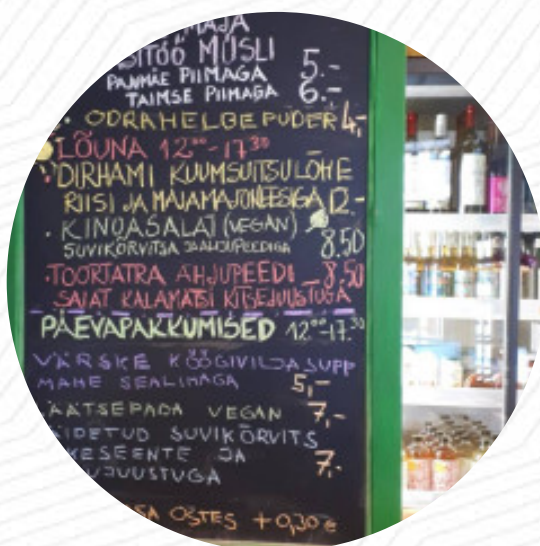 MAJA
SITÖÖ MÜSLI
PANMÄE PIIMAGA 5.-
TAIMSE PIIMAGA 6.-
· ODRAHELBEPUDER 4,-
LÕUNA 12⁰⁰-17³⁰
DIRHAMI KUUMSUITSULÕHE
RIISI JA MAJAMAJONEESIGA 12.-
· KINOASALAT (VEGAN)
SUVIKÕRVITSA JA AHJUPEEDIGA 8.50
· TOORTATRA AHJUPEEDI 8.50
SALAT KALAMATSI KITSEJUUSTUGA
PÄEVAPAKKUMISED 12⁰⁰-17.³⁰
VÄRSKE KÖÖGIVILJASUPP
MAHE SEALIHAGA 5,-
ÄÄTSEPADA VEGAN 7,-
IDETUD SUVIKÕRVITS
KESEENTE JA 7.-
UJUUSTUGA
SA OSTES +0,30 €